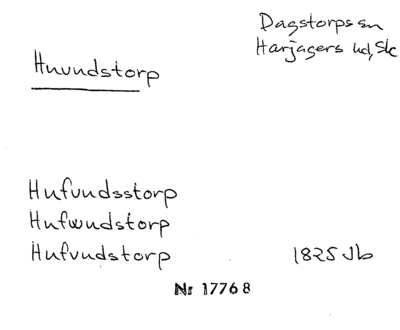 Dagstorps sn
Harjagers hd, Sk
Huvudstorp
Hufvudsstorp
Hufwudstorp
Hufvudstorp 1825 Jb
Nr 17768